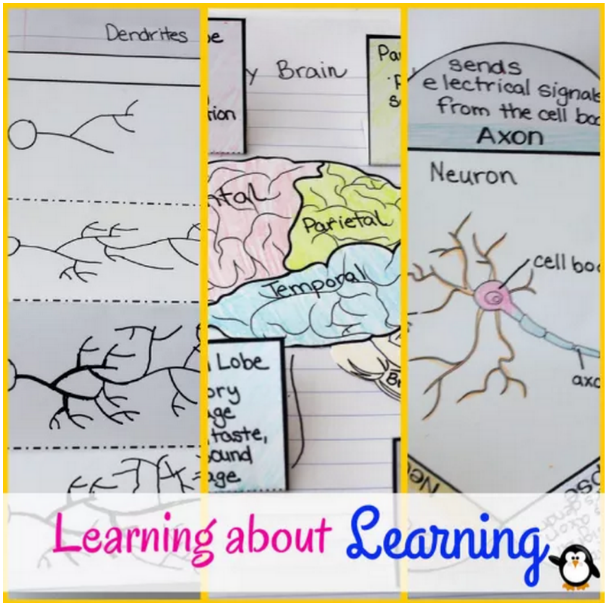 Dendrites
be
tion
y Brain
Pa
ntal
Parietal
Temporal
Lobe
ory
age
taste,
ound
age
sends
electrical signals
from the cell bod
Axon
Neuron
cell bod
axo
Learning about Learning